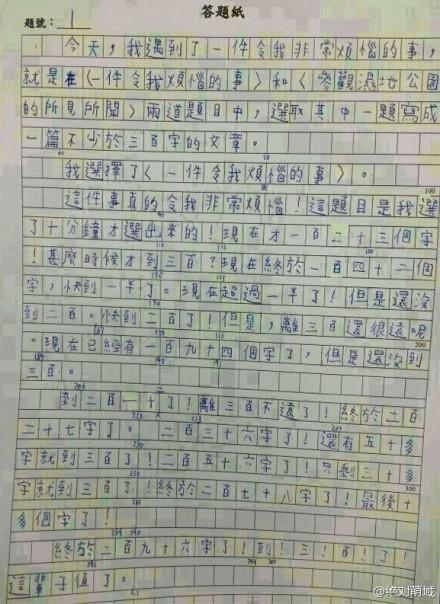 答題紙
題號：1
今天，我遇到了一件令我非常煩惱的事，
就是在〈一件令我煩惱的事〉和〈參觀濕地公園
的所見所聞〉兩道題目中，選取其中一題寫成
一篇不少於三百字的文章。
我選擇了〈一件令我煩惱的事〉。
100
這件事真的令我非常煩惱！這題目是我選
了十分鐘才選出來的！現在才一百二十三個字
！甚麼時候才到三百？現在終於一百四十二個
字，快到一半了。現在超過一半了！但是還沒
到二百。快到二百了！但是，離三百還很遠呢
200
。現在已經有一百九十四個字了，但是還沒到
三百。
到二百一十了！離三百不遠了！終於二百
二十七字了。二百三十六字了！還有五十多
字就到三百了！二百五十六字了！只剩三十多
300
字就到三百了！終於二百七十八字了！最後十
多個字了！
終於二百九十六字了！到！三！百！了！
這輩子值了。
@绝对萌域